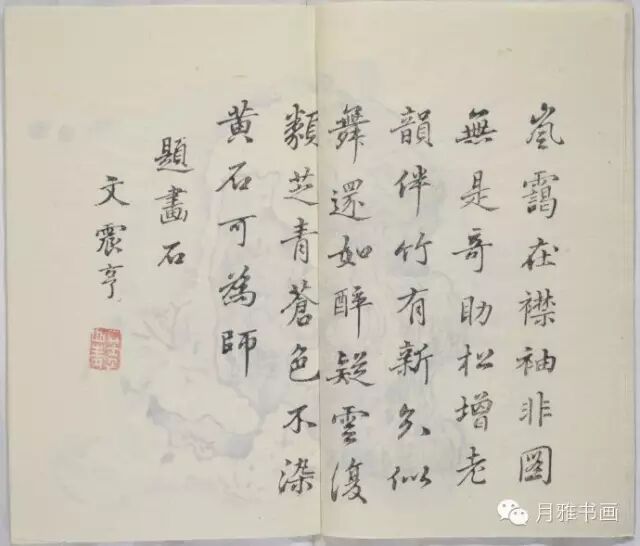 嵐靄在襟袖非圖
無是奇助松增老
韻伴竹有新分似
舞還如醉疑雲復
類芝青蒼色不染
黄石可為師
題畫石
文震亨
月雅书画